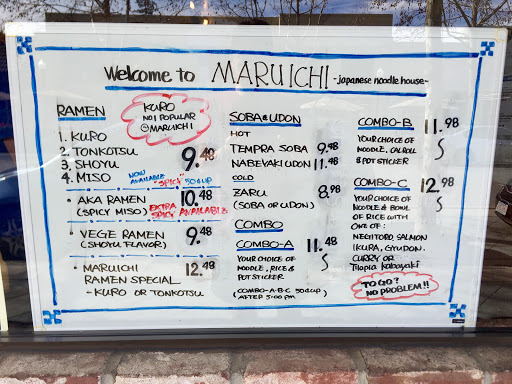 Welcome to MARUICHI -japanese noodle house-
RAMEN
KURO
NO1 POPULAR
@MARUICHI
1. KURO
2. TONKOTSU
3. SHOYU
4. MISO
9.48
NOW AVAILABLE "SPICY" 50¢UP
• AKA RAMEN 10.48
(SPICY MISO) EXTRA SPICY AVAILABLE
• VEGE RAMEN 9.48
(SHOYU FLAVOR)
• MARUICHI
RAMEN SPECIAL 12.48
- KURO OR TONKOTSU
SOBA & UDON
HOT
TEMPRA SOBA 9.48
NABEYAKI UDON 11.48
COLD
ZARU 8.98
(SOBA OR UDON)
COMBO
COMBO-A 11.48
YOUR CHOICE OF
NOODLE, RICE &
POT STICKER
(COMBO-A·B·C 50¢UP)
AFTER 5:00 PM
COMBO-B 11.98
YOUR CHOICE OF
NOODLE,
& POT STICKER
COMBO-C 12.98
YOUR CHOICE OF
NOODLE & BOWL
OF RICE WITH
ONE OF:
NEGITORO, SALMON
IKURA, GYUDON,
CURRY OR
Tilapia Kabayaki
TO GO?
NO PROBLEM!!